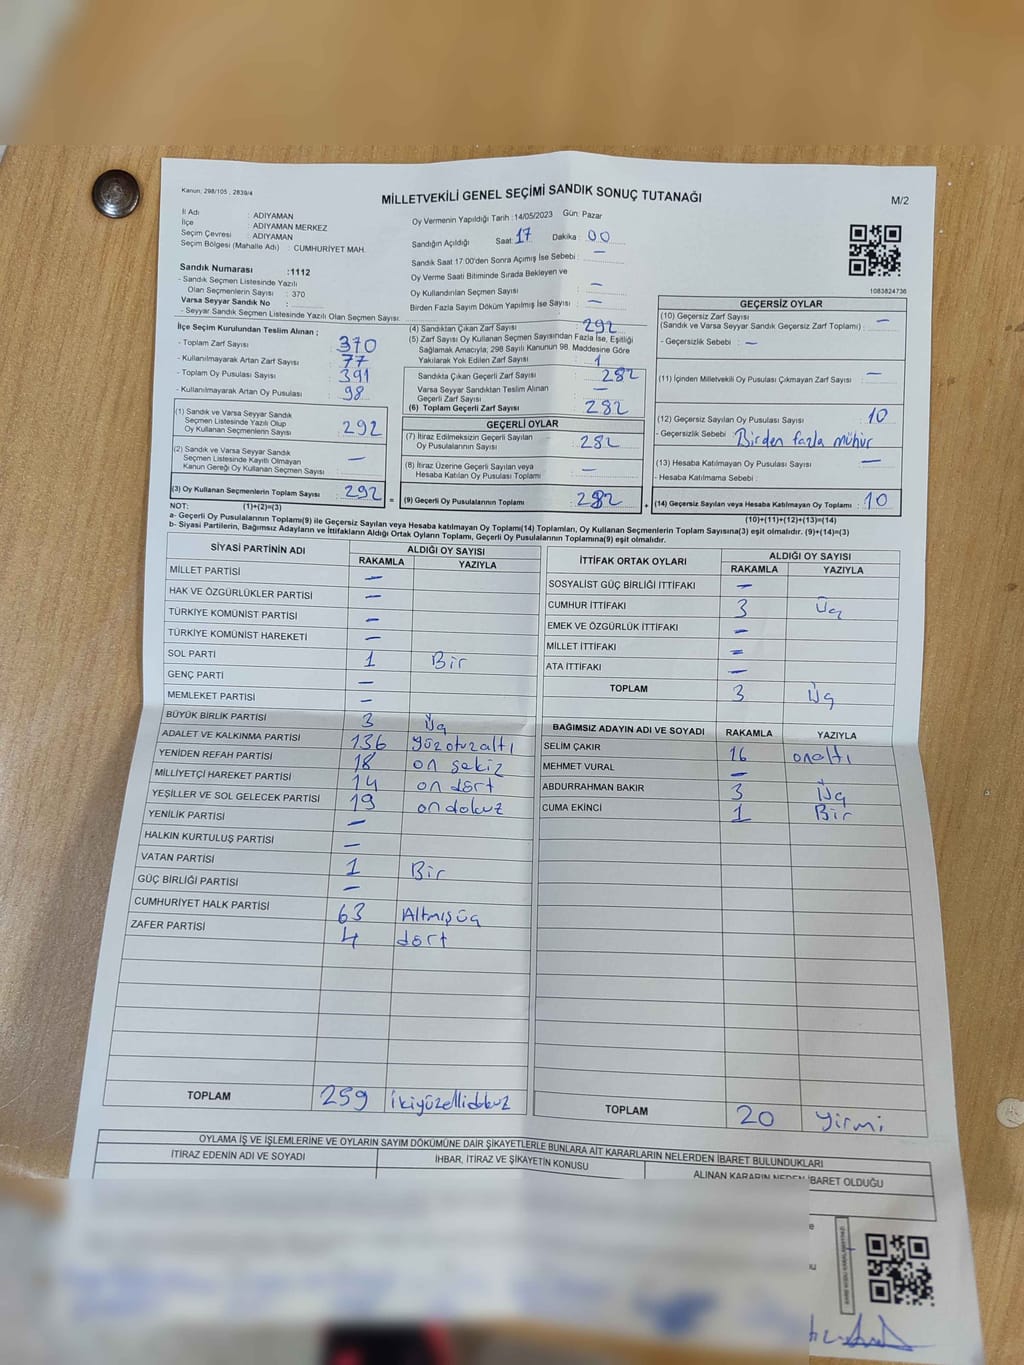 Kanun, 298/105 , 2839/4
MİLLETVEKİLİ GENEL SEÇİMİ SANDIK SONUÇ TUTANAĞI
M/2
İl Adı : ADIYAMAN
İlçe : ADIYAMAN MERKEZ
Seçim Çevresi : ADIYAMAN
Seçim Bölgesi (Mahalle Adı) : CUMHURİYET MAH.
Sandık Numarası :1112
- Sandık Seçmen Listesinde Yazılı
Olan Seçmenlerin Sayısı : 370
Varsa Seyyar Sandık No :
- Seyyar Sandık Seçmen Listesinde Yazılı Olan Seçmen Sayısı:
Oy Vermenin Yapıldığı Tarih :14/05/2023 Gün: Pazar
Sandığın Açıldığı Saat: 17 Dakika : 00
Sandık Saat 17:00'den Sonra Açımış İse Sebebi : —
Oy Verme Saati Bitiminde Sırada Bekleyen ve
Oy Kullandırılan Seçmen Sayısı : —
Birden Fazla Sayım Döküm Yapılmış İse Sayısı : —
1083824736
İlçe Seçim Kurulundan Teslim Alınan ;
- Toplam Zarf Sayısı : 370
- Kullanılmayarak Artan Zarf Sayısı : 77
- Toplam Oy Pusulası Sayısı : 391
- Kullanılmayarak Artan Oy Pusulası : 98
(1) Sandık ve Varsa Seyyar Sandık
Seçmen Listesinde Yazılı Olup
Oy Kullanan Seçmenlerin Sayısı : 292
(2) Sandık ve Varsa Seyyar Sandık
Seçmen Listesinde Kayıtlı Olmayan
Kanun Gereği Oy Kullanan Seçmen Sayısı : —
(3) Oy Kullanan Seçmenlerin Toplam Sayısı : 292 =
(4) Sandıktan Çıkan Zarf Sayısı : 292
(5) Zarf Sayısı Oy Kullanan Seçmen Sayısından Fazla İse, Eşitliği
Sağlamak Amacıyla; 298 Sayılı Kanunun 98. Maddesine Göre
Yakılarak Yok Edilen Zarf Sayısı : 1
Sandıkta Çıkan Geçerli Zarf Sayısı : 282
Varsa Seyyar Sandıktan Teslim Alınan
Geçerli Zarf Sayısı : —
(6) Toplam Geçerli Zarf Sayısı : 282
GEÇERLİ OYLAR
(7) İtiraz Edilmeksizin Geçerli Sayılan
Oy Pusulalarının Sayısı : 282
(8) İtiraz Üzerine Geçerli Sayılan veya
Hesaba Katılan Oy Pusulası Toplamı : —
(9) Geçerli Oy Pusulalarının Toplamı : 282 +
GEÇERSİZ OYLAR
(10) Geçersiz Zarf Sayısı
(Sandık ve Varsa Seyyar Sandık Geçersiz Zarf Toplamı) : —
- Geçersizlik Sebebi : —
(11) İçinden Milletvekili Oy Pusulası Çıkmayan Zarf Sayısı : —
(12) Geçersiz Sayılan Oy Pusulası Sayısı : 10
- Geçersizlik Sebebi : Birden fazla mühür
(13) Hesaba Katılmayan Oy Pusulası Sayısı : —
- Hesaba Katılmama Sebebi :
(14) Geçersiz Sayılan veya Hesaba Katılmayan Oy Toplamı : 10
NOT: (1)+(2)=(3) (10)+(11)+(12)+(13)=(14)
a- Geçerli Oy Pusulalarının Toplamı(9) ile Geçersiz Sayılan veya Hesaba katılmayan Oy Toplamı(14) Toplamları, Oy Kullanan Seçmenlerin Toplam Sayısına(3) eşit olmalıdır. (9)+(14)=(3)
b- Siyasi Partilerin, Bağımsız Adayların ve İttifakların Aldığı Ortak Oyların Toplamı, Geçerli Oy Pusulalarının Toplamına(9) eşit olmalıdır.
SİYASİ PARTİNİN ADI ALDIĞI OY SAYISI
RAKAMLA YAZIYLA
MİLLET PARTİSİ —
HAK VE ÖZGÜRLÜKLER PARTİSİ —
TÜRKİYE KOMÜNİST PARTİSİ —
TÜRKİYE KOMÜNİST HAREKETİ —
SOL PARTİ 1 Bir
GENÇ PARTİ —
MEMLEKET PARTİSİ —
BÜYÜK BİRLİK PARTİSİ 3 Üç
ADALET VE KALKINMA PARTİSİ 136 yüzotuzaltı
YENİDEN REFAH PARTİSİ 18 on sekiz
MİLLİYETÇİ HAREKET PARTİSİ 14 on dört
YEŞİLLER VE SOL GELECEK PARTİSİ 19 ondokuz
YENİLİK PARTİSİ —
HALKIN KURTULUŞ PARTİSİ —
VATAN PARTİSİ 1 Bir
GÜÇ BİRLİĞİ PARTİSİ —
CUMHURİYET HALK PARTİSİ 63 Altmışüç
ZAFER PARTİSİ 4 dört
TOPLAM 259 ikiyüzellidokuz
İTTİFAK ORTAK OYLARI ALDIĞI OY SAYISI
RAKAMLA YAZIYLA
SOSYALİST GÜÇ BİRLİĞİ İTTİFAKI —
CUMHUR İTTİFAKI 3 Üç
EMEK VE ÖZGÜRLÜK İTTİFAKI —
MİLLET İTTİFAKI —
ATA İTTİFAKI —
TOPLAM 3 Üç
BAĞIMSIZ ADAYIN ADI VE SOYADI RAKAMLA YAZIYLA
SELİM ÇAKIR 16 onaltı
MEHMET VURAL —
ABDURRAHMAN BAKIR 3 Üç
CUMA EKİNCİ 1 Bir
TOPLAM 20 yirmi
OYLAMA İŞ VE İŞLEMLERİNE VE OYLARIN SAYIM DÖKÜMÜNE DAİR ŞİKAYETLERLE BUNLARA AİT KARARLARIN NELERDEN İBARET BULUNDUKLARI
İTİRAZ EDENİN ADI VE SOYADI
İHBAR, İTİRAZ VE ŞİKAYETİN KONUSU
ALINAN KARARIN NEDEN İBARET OLDUĞU